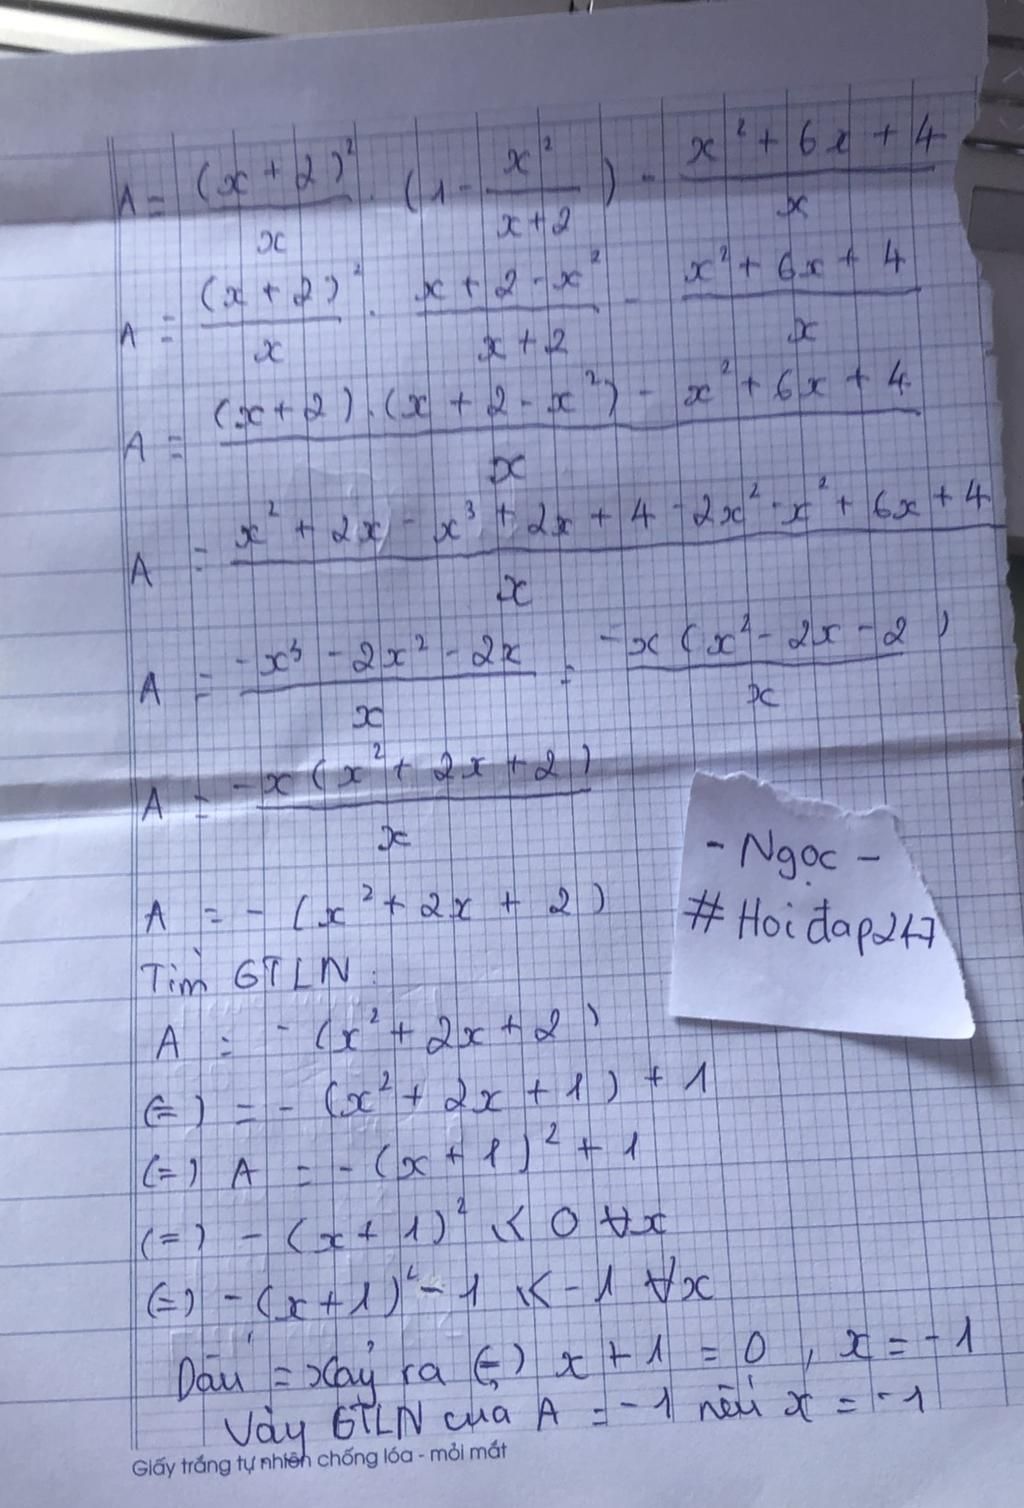 A = (x + 2)² / x . (1 - x² / x + 2) - x² + 6x + 4 / x
A = (x + 2)² / x . x + 2 - x² / x + 2 - x² + 6x + 4 / x
A = (x + 2) . (x + 2 - x²) - x² + 6x + 4 / x
A = x² + 2x - x³ + 2x + 4 - 2x² - x² + 6x + 4 / x
A = -x³ - 2x² - 2x / x = -x (x² - 2x - 2) / x
A = -x (x² + 2x + 2) / x
A = - (x² + 2x + 2)
Tìm GTLN :
A = - (x² + 2x + 2)
(=) = - (x² + 2x + 1) + 1
(=) A = - (x + 1)² + 1
(=) - (x + 1)² ≤ 0 ∀x
(=) - (x + 1)² - 1 ≤ -1 ∀x
Dấu = xảy ra (=) x + 1 = 0 , x = -1
Vậy GTLN của A = -1 nếu x = -1
- Ngọc -
# Hoi đap247
Giấy trắng tự nhiên chống lóa - mỏi mắt